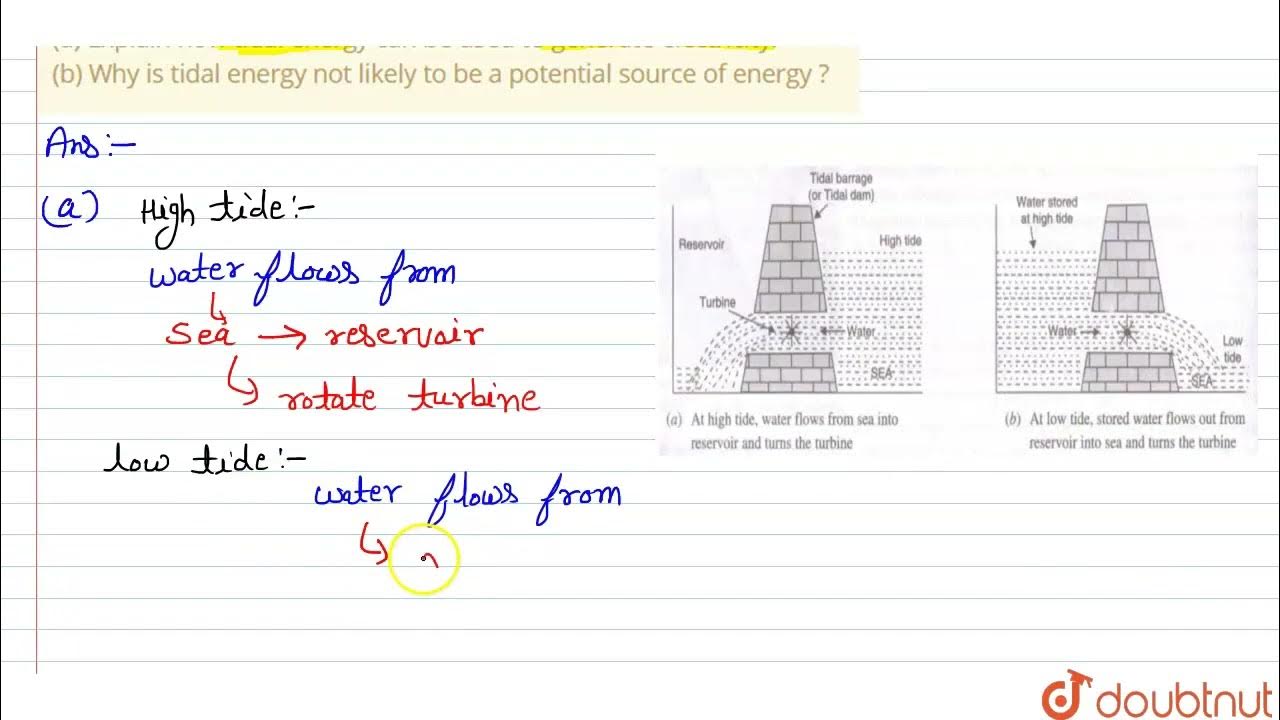 (a) Explain how tidal energy can be used to generate electricity
(b) Why is tidal energy not likely to be a potential source of energy ?
Ans:-
(a) High tide:-
water flows from
sea → reservoir
rotate turbine
low tide:-
water flows from
Tidal barrage
(or Tidal dam)
Reservoir
High tide
Turbine
Water
SEA
(a) At high tide, water flows from sea into
reservoir and turns the turbine
Water stored
at high tide
Water
Low
tide
SEA
(b) At low tide, stored water flows out from
reservoir into sea and turns the turbine
doubtnut